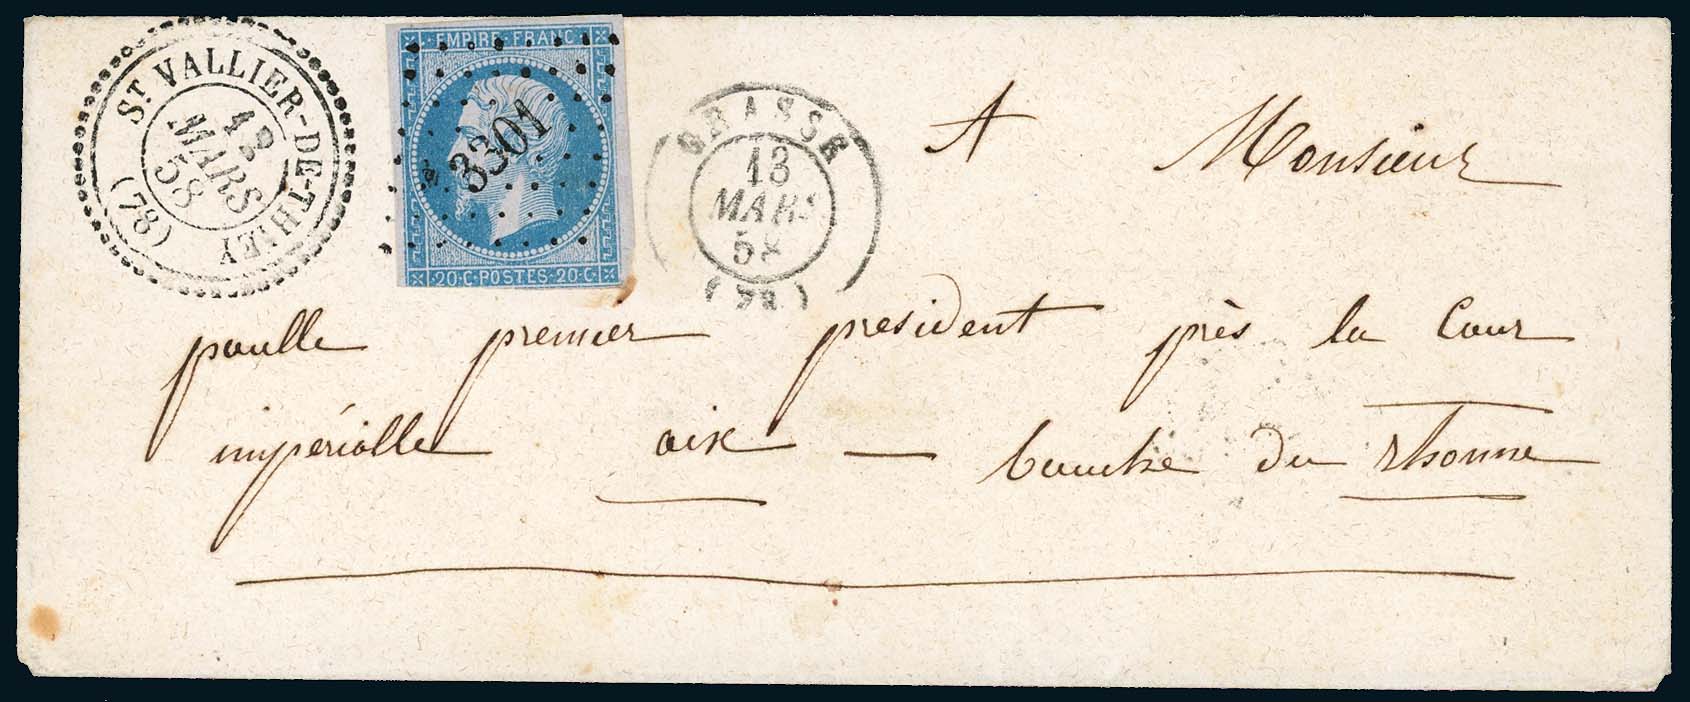 ST VALLIER-DE-THIEY
12
MARS
58
(78)
EMPIRE FRANC
3301
20·C·POSTES·20·C·
GRASSE
13
MARS
58
(78)
A Monsieur
poulle premier president près la Cour
impérialle aix — bouche du rhonne